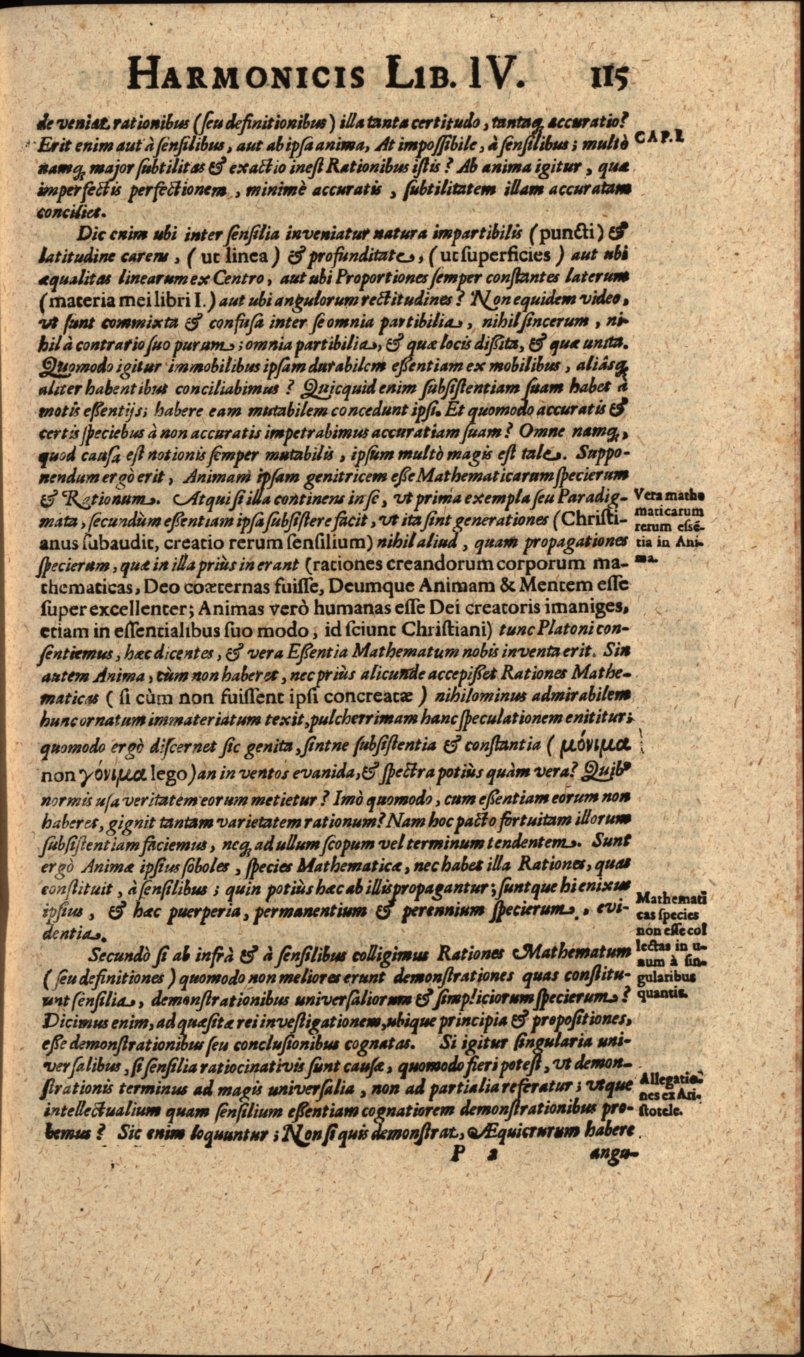 HARMONICIS LIB. IV. 115
de veniat rationibus (ſeu definitionibus) illa tanta certitudo, tantaq́; accuratio?
CAP. I.
Erit enim aut à ſenſilibus, aut ab ipſa anima, At impoſſibile, à ſenſilibus; multò
namq́; major ſubtilitas & exactio ineſt Rationibus iſtis? Ab anima igitur, quæ
imperfectis perfectionem, minimè accuratis, ſubtilitatem illam accuratam
conciliet.
Dic enim ubi inter ſenſilia inveniatur natura impartibilis (puncti) &
latitudine carens, (ut linea) & profunditate, (ut ſuperficies) aut ubi
æqualitas linearum ex Centro, aut ubi Proportiones ſemper conſtantes laterum
(materia mei libri I.) aut ubi angulorum rectitudines? Non equidem video,
ut ſunt commixta & confuſa inter ſe omnia partibilia, nihil ſincerum, ni-
hil à contrario ſuo purum; omnia partibilia, & quæ locis diſſita, & quæ unita.
Quomodo igitur immobilibus ipſam durabilem eßentiam ex mobilibus, aliásq́;
aliter habentibus conciliabimus? Quicquid enim ſubſiſtentiam ſuam habet à
motis eßentijs; habere eam mutabilem concedunt ipſi. Et quomodo accuratis &
certis ſpeciebus à non accuratis impetrabimus accuratiam ſuam? Omne namq́;,
quod cauſa eſt notionis ſemper mutabilis, ipſum multò magis eſt tale. Suppo-
nendum ergò erit, Animam ipſam genitricem eße Mathematicarum ſpecierum
& Rationum. Atqui ſi illa continens in ſe, vt prima exempla ſeu Paradig-
mata, ſecundùm eßentiam ipſa ſubſiſtere facit, vt ita ſint generationes (Chriſti-
anus ſubaudit, creatio rerum ſenſilium) nihil aliud, quam propagationes
ſpecierum, quæ in illa priùs inerant (rationes creandorum corporum ma-
Vera mathe
maticarum
rerum eſsē-
tia in Ani-
ma.
thematicas, Deo coæternas fuiſſe, Deumque Animam & Mentem eſſe
ſuperexcellenter; Animas verò humanas eſſe Dei creatoris imaniges,
etiam in eſſentialibus ſuo modo, id ſciunt Chriſtiani) tunc Platoni con-
ſentiemus, hæc dicentes, & vera Eßentia Mathematum nobis inventa erit. Sin
autem Anima, cùm non haberet, nec priùs alicunde accepißet Rationes Mathe-
maticas (ſi cùm non fuiſſent ipſi concreatæ) nihilominus admirabilem
hunc ornatum immateriatum texit, pulcherrimam hanc ſpeculationem enititur;
quomodo ergò diſcernet ſic genita, ſintne ſubſiſtentia & conſtantia (μόνιμα
non γόνιμα lego) an in ventos evanida, & ſpectra potiùs quàm vera? Quib9
normis uſa veritatem eorum metietur? Imò quomodo, cum eßentiam eorum non
haberet, gignit tantam varietatem rationum? Nam hoc pacto fortuitam illorum
ſubſiſtentiam faciemus, neq́; ad ullum ſcopum vel terminum tendentem. Sunt
ergò Animæ ipſius ſoboles, ſpecies Mathematicæ, nec habet illa Rationes, quas
conſtituit, à ſenſilibus; quin potiùs hæc ab illis propagantur; ſuntque hi enixus
ipſius, & hæc puerperia, permanentium & perennium ſpecierum, evi-
dentia.
Mathemati
cas ſpecies
non eſſe col
lectas in u-
num à ſin-
gularibus
quantis.
Secundò ſi ab infrà & à ſenſilibus colligimus Rationes Mathematum
(ſeu definitiones) quomodo non meliores erunt demonſtrationes quas conſtitu-
unt ſenſilia, demonſtrationibus univerſaliorum & ſimpliciorum ſpecierum?
Dicimus enim, ad quæſitæ rei inveſtigationem, ubique principia & propoſitiones,
eße demonſtrationibus ſeu concluſionibus cognatas. Si igitur ſingularia uni-
verſalibus, ſi ſenſilia ratiocinativis ſunt cauſæ, quomodo fieri poteſt, vt demon-
ſtrationis terminus ad magis univerſalia, non ad partialia referatur; utque
intellectualium quam ſenſilium eßentiam cognatiorem demonſtrationibus pro-
bemus? Sic enim loquuntur; Non ſi quis demonſtrat, Æquicrurum habere
Allegatio-
nes ex Ari-
ſtotele.
P 2 angu-